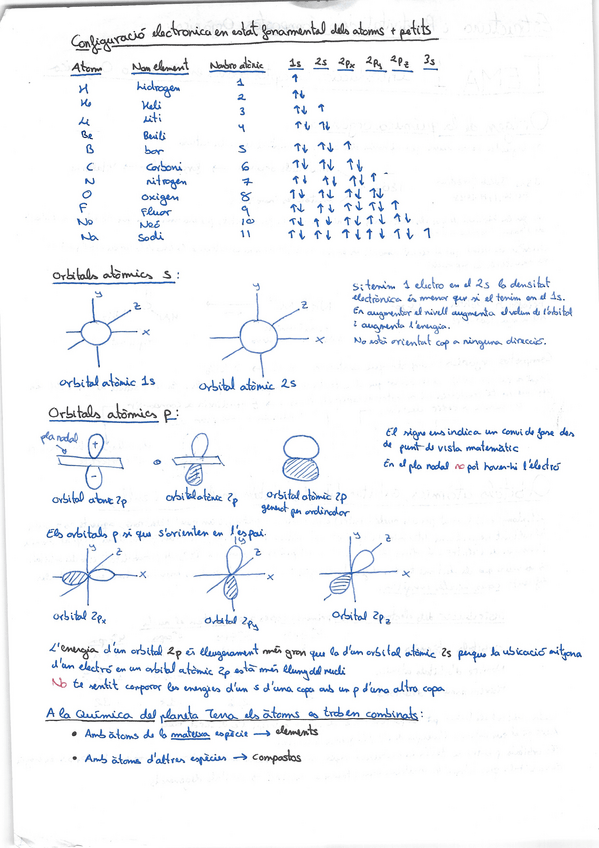 Configuració electronica en estat fonamental dels atoms + petits
Atom Nom element Nombre atòmic 1s 2s 2px 2py 2pz 3s
H hidrogen 1 ↑
He Heli 2 ↑↓
Li liti 3 ↑↓ ↑
Be Beril·li 4 ↑↓ ↑↓
B bor 5 ↑↓ ↑↓ ↑
C Carboni 6 ↑↓ ↑↓ ↑↓
N nitrogen 7 ↑↓ ↑↓ ↑↓ ↑
O oxigen 8 ↑↓ ↑↓ ↑↓ ↑↓
F Fluor 9 ↑↓ ↑↓ ↑↓ ↑↓ ↑
Ne Neó 10 ↑↓ ↑↓ ↑↓ ↑↓ ↑↓
Na Sodi 11 ↑↓ ↑↓ ↑↓ ↑↓ ↑↓ ↑
Orbitals atòmics s:
y
z
x
y
z
x
orbital atòmic 1s
orbital atòmic 2s
Si tenim 1 electro en el 2s la densitat
electrònica és menor que si el tenim en el 1s.
En augmentar el nivell augmenta el volum de l'orbital
i augmenta l'energia.
No està orientat cap a ninguna direcció.
Orbitals atòmics p:
pla nodal
+
-
orbital atomic 2p
orbital atòmic 2p
orbital atòmic 2p
generat per ordinador
El signe ens indica un canvi de fase des
de punt de vista matemàtic
En el pla nodal no pot haver-hi l'electró
Els orbitals p si que s'orienten en l'espai.
y
z
x
y
z
x
y
z
x
orbital 2px
orbital 2py
orbital 2pz
L'energia d'un orbital 2p és lleugerament més gran que la d'un orbital atòmic 2s perque la ubicació mitjana
d'un electró en un orbital atòmic 2p està més lluny del nucli
No te sentit comparar les energies d'un s d'una capa amb un p d'una altra capa
A la Química del planeta Terra els àtoms es troben combinats:
• Amb àtoms de la mateixa espècie → elements
• Amb àtoms d'altres espècies → compostos